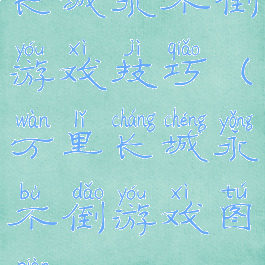 长城永不倒
yóu xì jì qiǎo
游戏技巧（
wàn lǐ cháng chéng yǒng
万里长城永
bù dǎo yóu xì tú
不倒游戏图